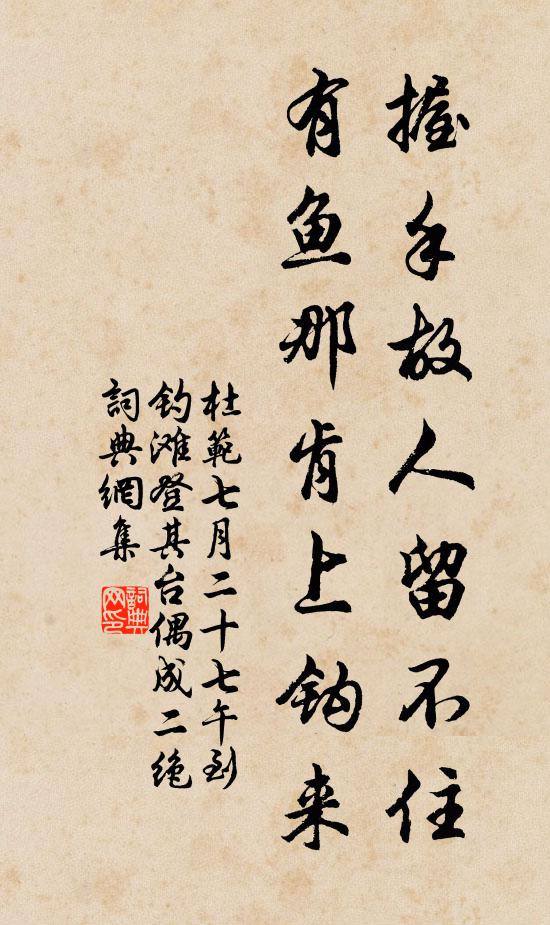 握手故人留不住
有鱼那肯上钩来
杜範七月二十七午到
钓滩登其台偶成二绝
詞典網集
詞典网印